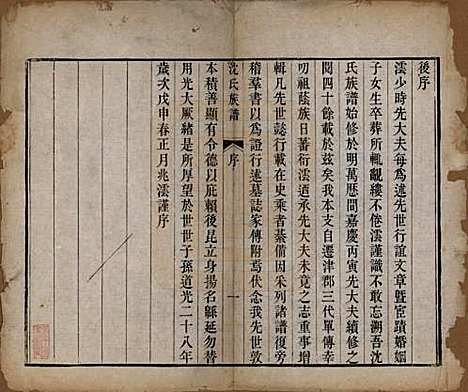 後序
澐少時先大夫每為述先世行誼文章暨宦蹟婚姻
子女生卒葬所輒覼縷不倦澐謹識不敢忘溯吾沈
氏族譜始修於明萬厯間嘉慶丙寅先大夫續修之
閱四十餘載於茲矣我本支自遷津郡三代單傳幸
叨祖蔭族日蕃衍澐遒承先大夫未竟之志重事增
輯凡先世懿行載在史乘者綦備因采列諸譜復旁
稽羣書以為證行述墓誌家傳附焉伏念我先世敦
沈氏族譜
序
一
本積善顯有令德以庇賴後昆立身揚名緜延勿替
用光大厥緒是所厚望於世世子孫道光二十八年
歲次戊申春正月兆澐謹序